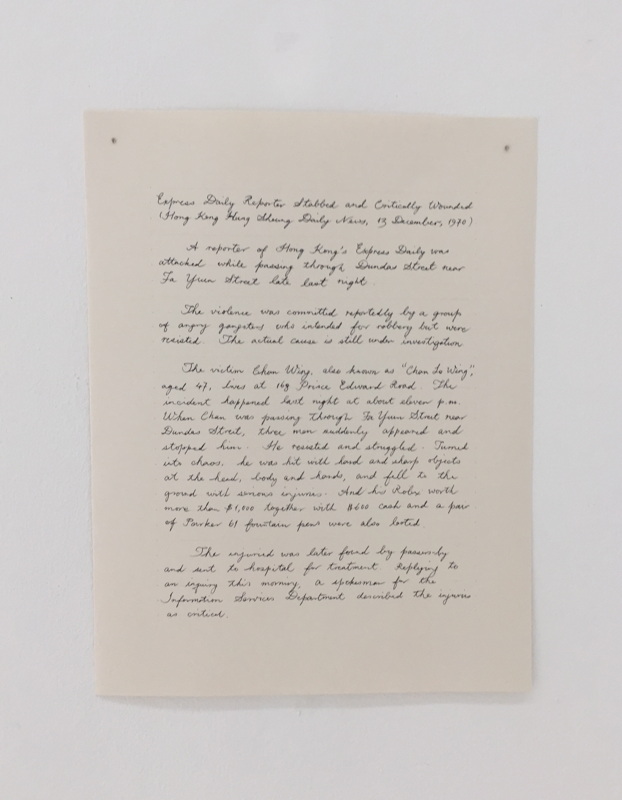 Express Daily Reporter Stabbed and Critically Wounded
(Hong Kong Hung Sheung Daily News, 13 December, 1970)
A reporter of Hong Kong's Express Daily was
attacked while passing through Dundas Street near
Fa Yuen Street late last night.
The violence was committed reportedly by a group
of angry gangsters who intended for robbery but were
resisted. The actual cause is still under investigation
The victim Chan Wing, also known as "Chan So Wing",
aged 47, lives at 169 Prince Edward Road. The
incident happened last night at about eleven p.m.
When Chan was passing through Fa Yuen Street near
Dundas Street, three men suddenly appeared and
stopped him. He resisted and struggled. Turned
into chaos, he was hit with hard and sharp objects
at the head, body and hands, and fell to the
ground with serious injuries. And his Rolex worth
more than $1,000 together with $600 cash and a pair
of Parker 61 fountain pens were also looted.
The injured was later found by passersby
and sent to hospital for treatment. Replying to
an inquiry this morning, a spokesman for the
Information Services Department described the injuries
as critical.